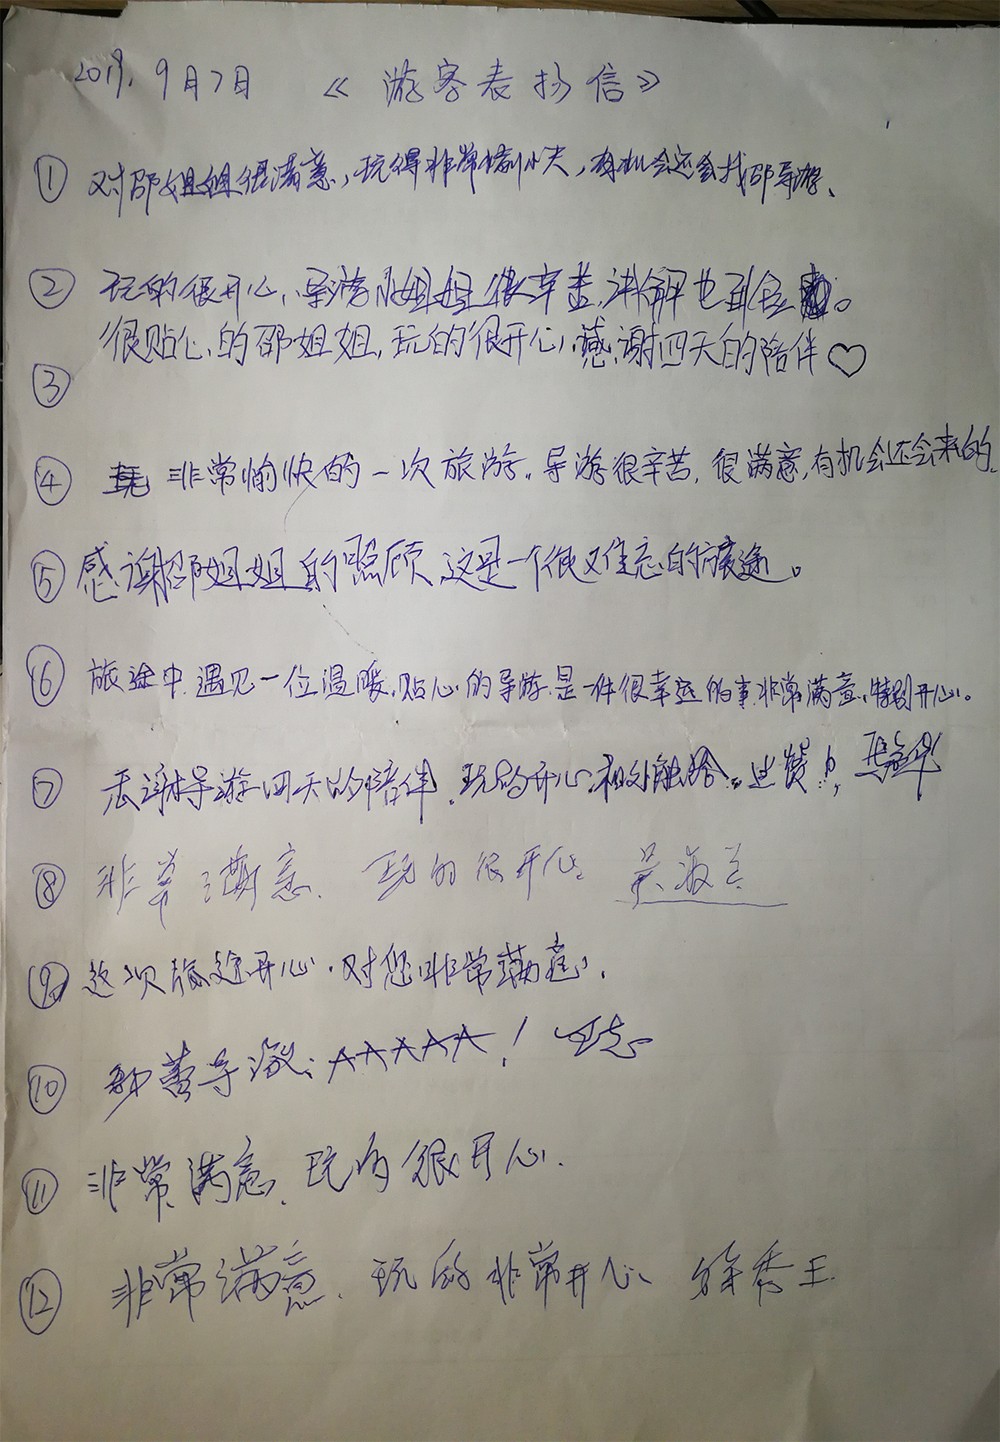 2019.9月7日 《游客表扬信》
① 对邵姐姐很满意,玩得非常愉快,有机会还会找邵导游、
② 玩的很开心、导游小姐姐很辛苦,讲解也到位。
很贴心的邵姐姐,玩的很开心,感谢四天的陪伴♡
③
④ 非常愉快的一次旅游。导游很辛苦,很满意,有机会还会来的.
⑤ 感谢邵姐姐的照顾,这是一个很难忘的旅途。
⑥ 旅途中遇见一位温暖,贴心的导游是一件很幸运的事非常满意、特别开心。
⑦ 感谢导游四天的陪伴.玩的开心相处融洽。点赞!
⑧ 非常满意.玩的很开心。吴淑兰
⑨ 这次旅途开心.对您非常满意.
⑩ 导游:AAAAA!
⑪ 非常满意.玩的很开心.
⑫ 非常满意.玩的非常开心、徐秀玉